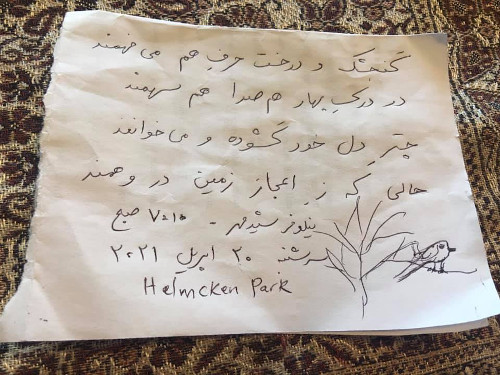 گنجشک و درخت حرفِ هم می فهمند
در درکِ بهار هم صدا هم سهمند
چترِ دل خود گشوده و می خوانند
حالی که زِ اعجاز زمین در وهمند
نیلوفر شیدمهر - صبح
سه شنبه ۲۰ اپریل ۲۰۲۱
Helmcken Park